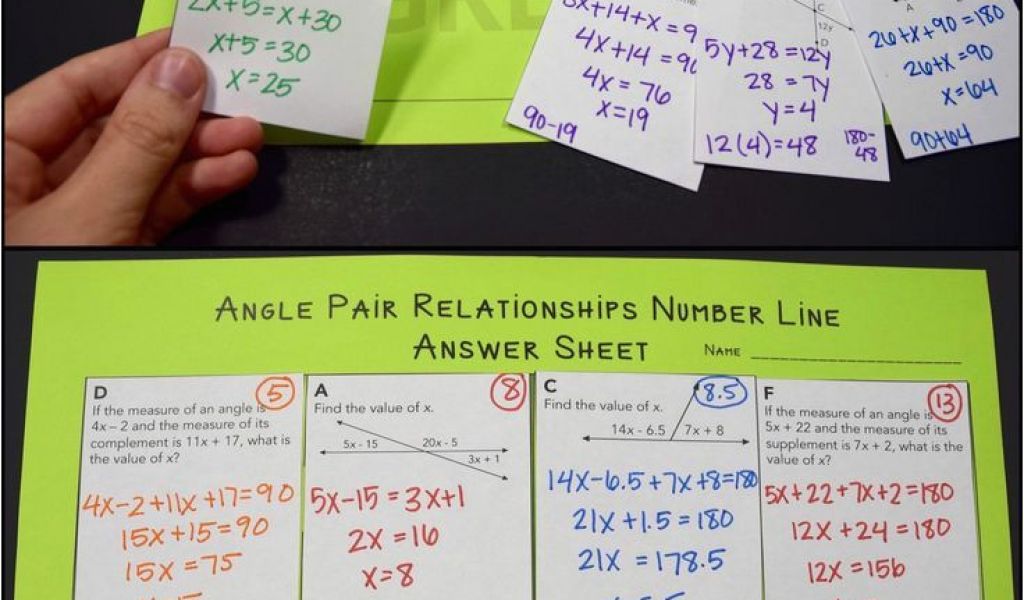 2x+5=x+30
x+5=30
x=25
4x+14=90
4x=76
x=19
90-19
C
12y
D
5y+28=12y
28=7y
y=4
12(4)=48
180-
48
A
26+x+90=180
26+x=90
x=64
90+64
ANGLE PAIR RELATIONSHIPS NUMBER LINE
ANSWER SHEET
NAME
D
5
If the measure of an angle is
4x – 2 and the measure of its
complement is 11x + 17, what is
the value of x?
4x-2+11x+17=90
15x+15=90
15x=75
A
8
Find the value of x.
5x - 15
20x - 5
3x + 1
5x-15=3x+1
2x=16
x=8
C
8.5
Find the value of x.
14x - 6.5
7x + 8
14x-6.5+7x+8=180
21x+1.5=180
21x=178.5
F
13
If the measure of an angle is
5x + 22 and the measure of its
supplement is 7x + 2, what is the
value of x?
5x+22+7x+2=180
12x+24=180
12x=156